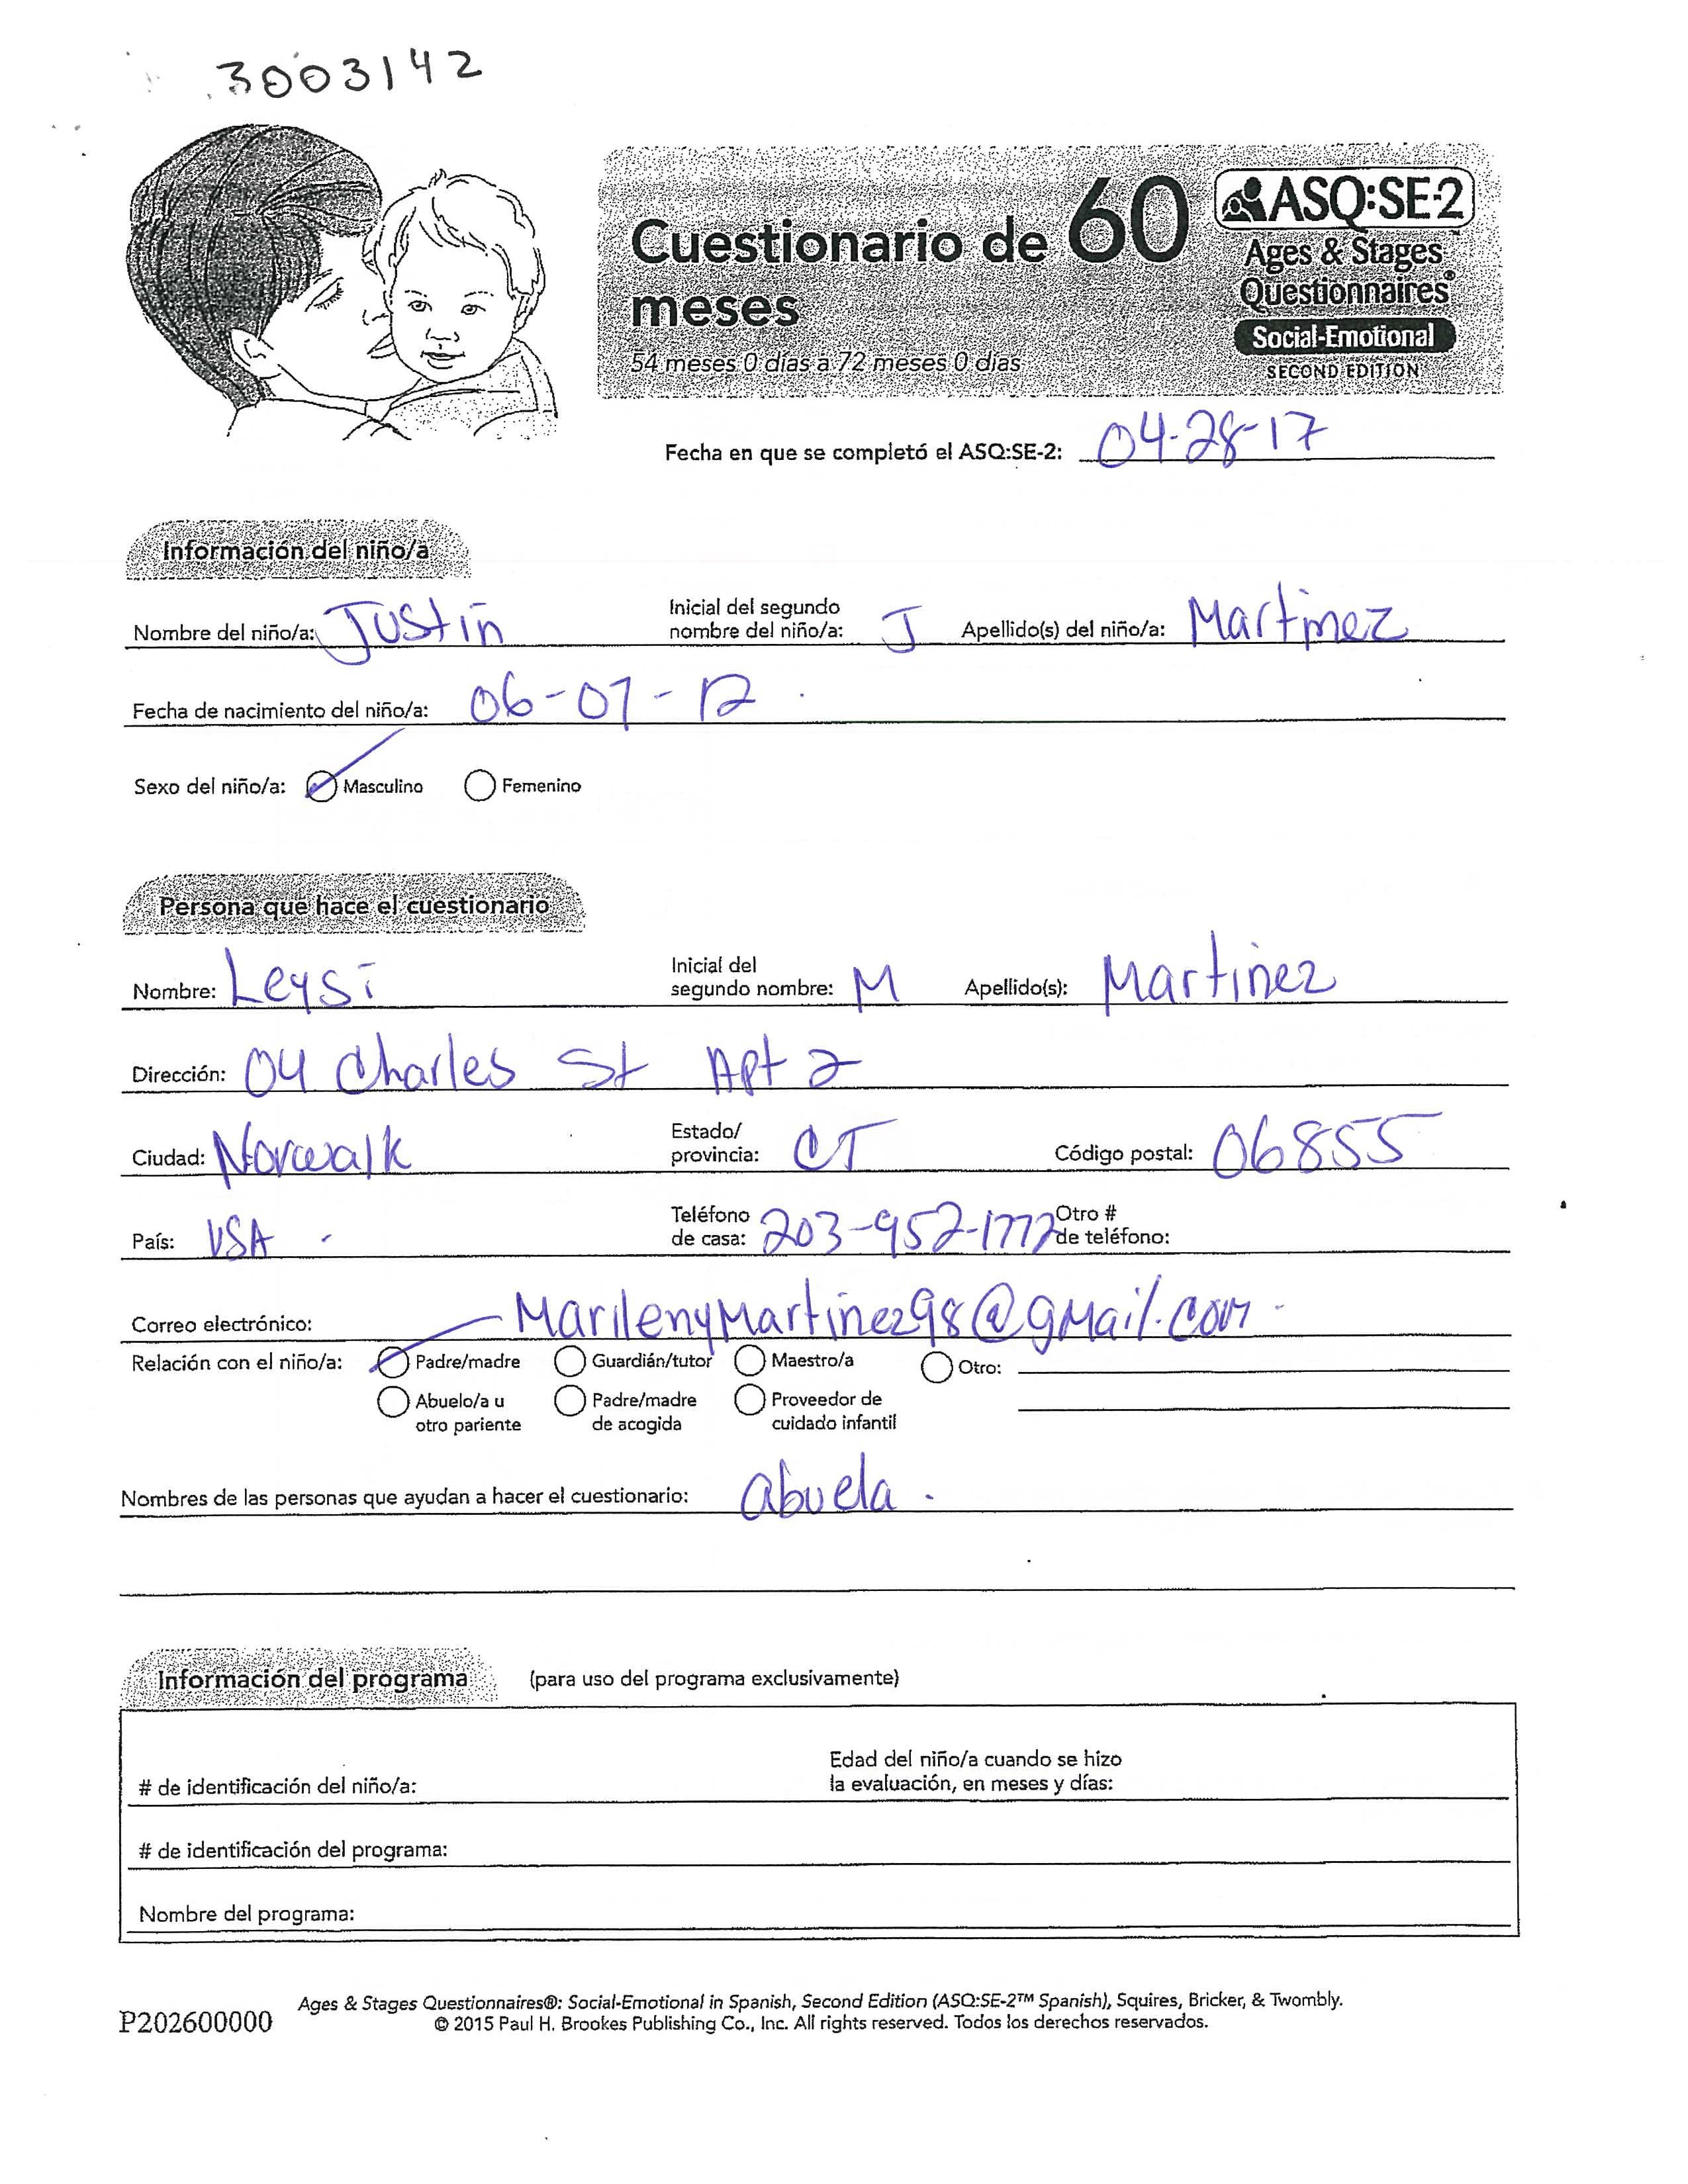 3003142
Cuestionario de 60 meses
54 meses 0 días a 72 meses 0 días
ASQ:SE-2™
Ages & Stages Questionnaires®
Social-Emotional
SECOND EDITION
Fecha en que se completó el ASQ:SE-2: 04-28-17
Información del niño/a
Nombre del niño/a: Justin Inicial del segundo nombre del niño/a: J Apellido(s) del niño/a: Martinez
Fecha de nacimiento del niño/a: 06-07-12
Sexo del niño/a: Masculino Femenino
Persona que hace el cuestionario
Nombre: Leysi Inicial del segundo nombre: M Apellido(s): Martinez
Dirección: 04 Charles St Apt 2
Ciudad: Norwalk Estado/provincia: CT Código postal: 06855
País: USA Teléfono de casa: 203-952-1777 Otro # de teléfono:
Correo electrónico: MarilenyMartinez98@gmail.com
Relación con el niño/a: Padre/madre Guardián/tutor Maestro/a Otro:
Abuelo/a u otro pariente Padre/madre de acogida Proveedor de cuidado infantil
Nombres de las personas que ayudan a hacer el cuestionario: abuela.
Información del programa (para uso del programa exclusivamente)
# de identificación del niño/a: Edad del niño/a cuando se hizo la evaluación, en meses y días:
# de identificación del programa:
Nombre del programa:
P202600000
Ages & Stages Questionnaires®: Social-Emotional in Spanish, Second Edition (ASQ:SE-2™ Spanish), Squires, Bricker, & Twombly.
© 2015 Paul H. Brookes Publishing Co., Inc. All rights reserved. Todos los derechos reservados.